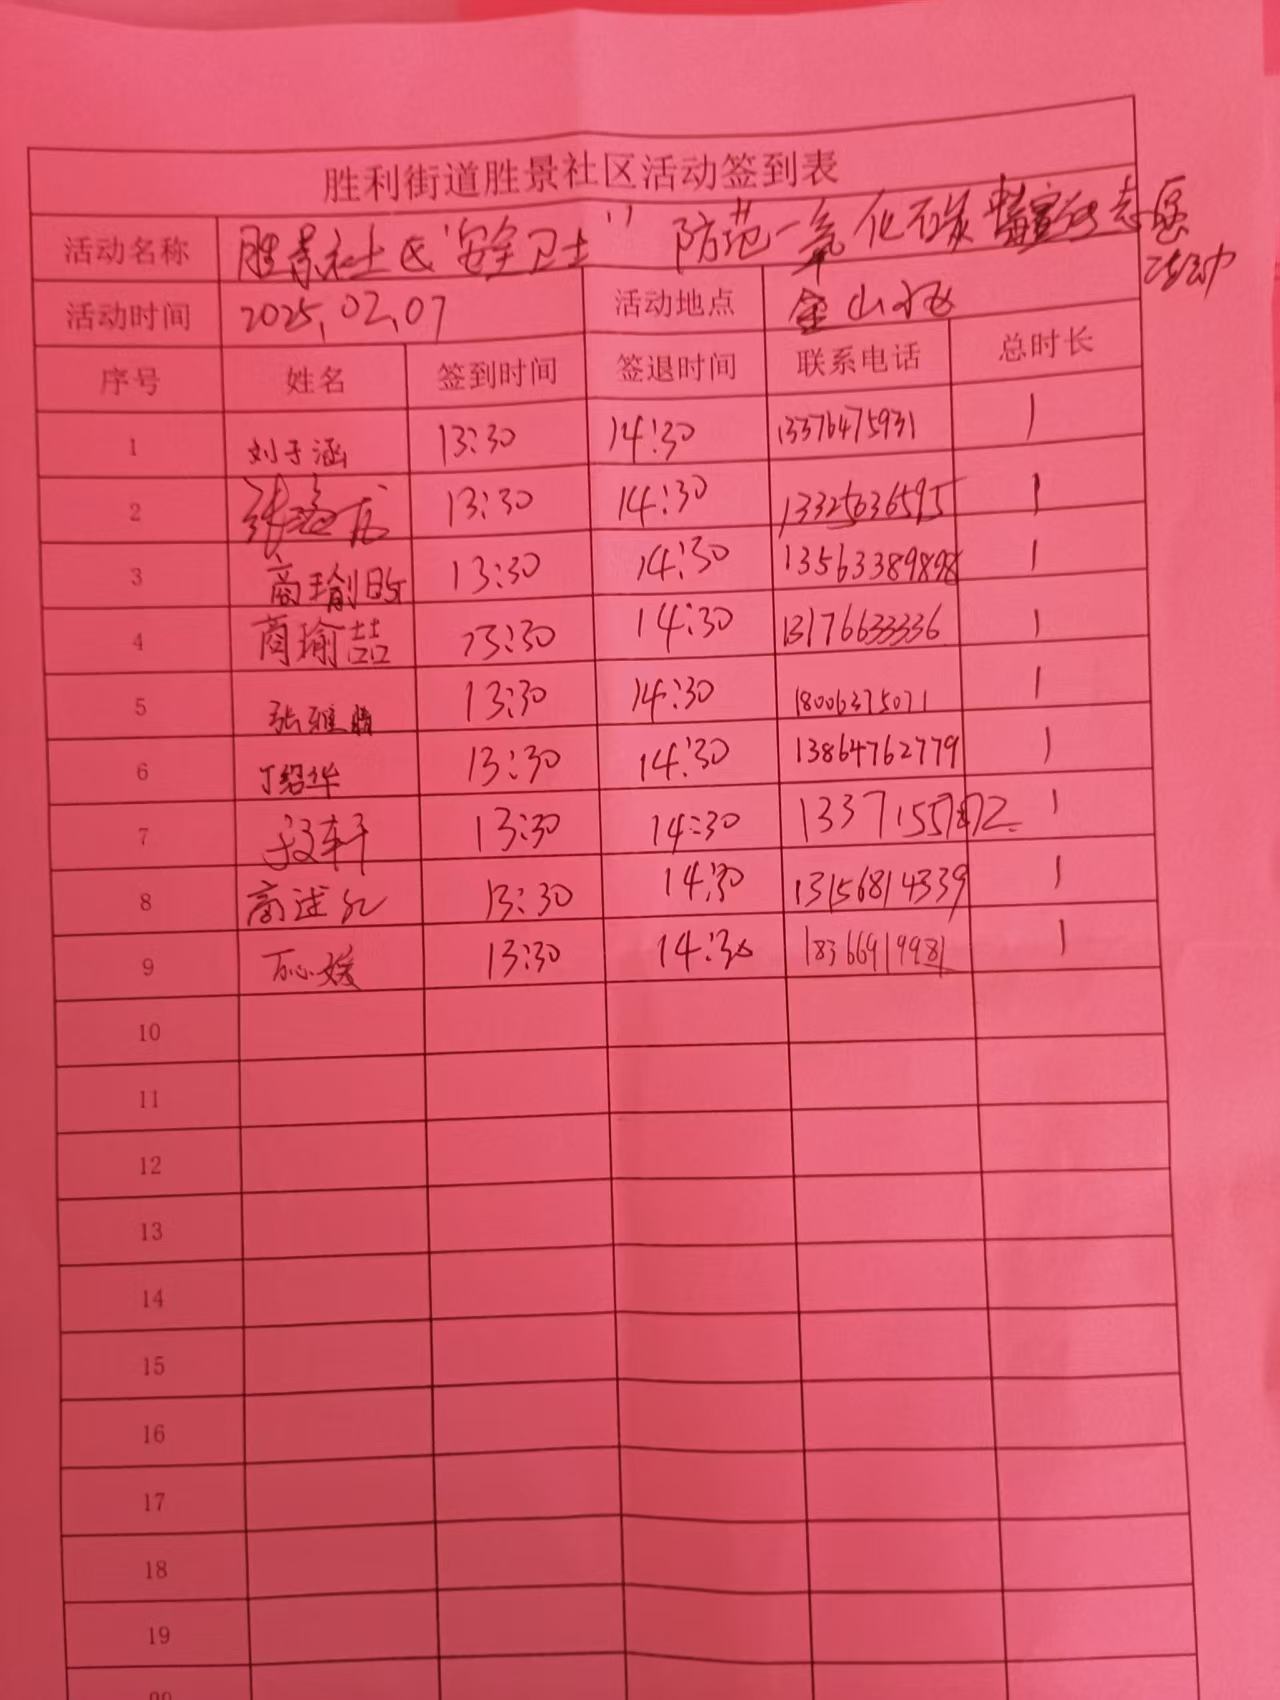 胜利街道胜景社区活动签到表
活动名称 胜景社区"安全卫士" 防范一氧化碳 志愿
活动
活动时间 2025.02.07 活动地点 金山
序号 姓名 签到时间 签退时间 联系电话 总时长
1 刘子涵 13:30 14:30 13376475931 1
2 13:30 14:30 13325636595 1
3 商瑜 13:30 14:30 13563389898 1
4 商瑜喆 13:30 14:30 13176633336 1
5 张雅 13:30 14:30 18006375071 1
6 丁绍华 13:30 14:30 13864762779 1
7 段轩 13:30 14:30 1
8 13:30 14:30 13156814339 1
9 13:30 14:30 18366919981 1
10
11
12
13
14
15
16
17
18
19
20